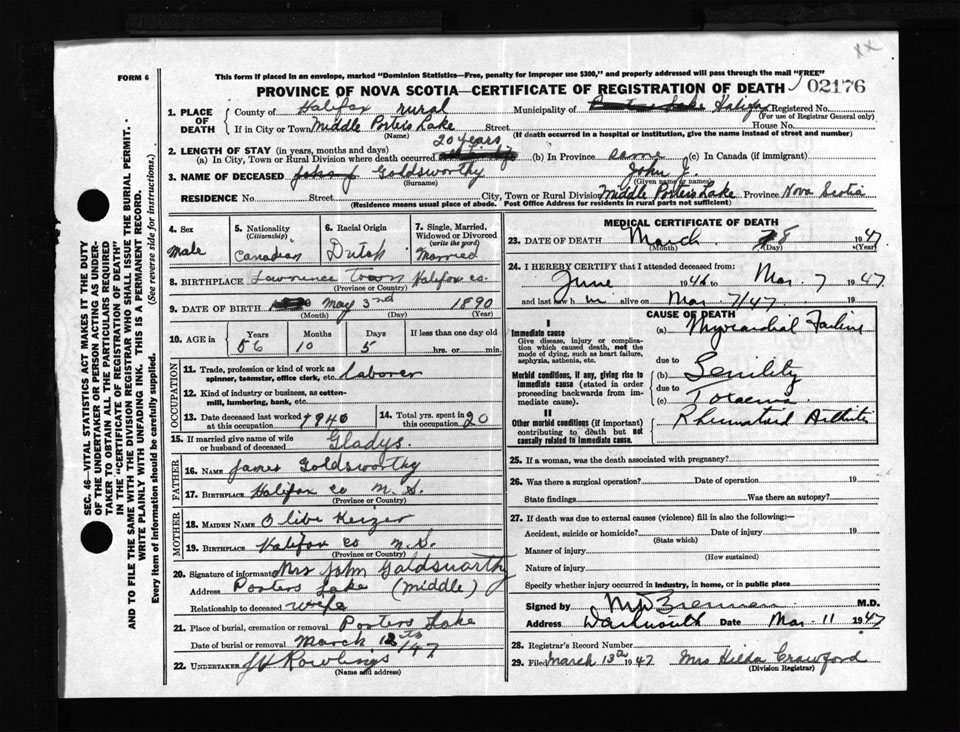 FORM 6
This form if placed in an envelope, marked "Dominion Statistics—Free, penalty for improper use $300," and properly addressed will pass through the mail "FREE"
PROVINCE OF NOVA SCOTIA—CERTIFICATE OF REGISTRATION OF DEATH 02176
1. PLACE OF DEATH County of Halifax rural Municipality of Halifax Registered No.
(For use of Registrar General only)
If in City or Town Middle Porters Lake Street House No.
(If death occurred in a hospital or institution, give the name instead of street and number)
2. LENGTH OF STAY (in years, months and days) 20 years
(a) In City, Town or Rural Division where death occurred (b) In Province same (c) In Canada (if immigrant)
3. NAME OF DECEASED Goldsworthy John J.
(Surname) (Given name or names)
RESIDENCE No. Street City, Town or Rural Division Middle Porters Lake Province Nova Scotia
(Residence means usual place of abode. Post Office Address for residents in rural parts not sufficient)
4. Sex Male
5. Nationality (Citizenship) Canadian
6. Racial Origin Dutch
7. Single, Married, Widowed or Divorced (write the word) Married
8. BIRTHPLACE Lawrence town Halifax co.
(Province or Country)
9. DATE OF BIRTH May 3rd 1890
(Month) (Day) (Year)
10. AGE in Years 56 Months 10 Days 5 If less than one day old
hrs. or min.
OCCUPATION
11. Trade, profession or kind of work as spinner, teamster, office clerk, etc. laborer
12. Kind of industry or business, as cotton-mill, lumbering, bank, etc.
13. Date deceased last worked at this occupation 1940
14. Total yrs. spent in this occupation 20
15. If married give name of wife or husband of deceased Gladys.
FATHER
16. NAME James Goldsworthy
17. BIRTHPLACE Halifax co N.S.
(Province or Country)
MOTHER
18. MAIDEN NAME Olibe Keizer
19. BIRTHPLACE Halifax co N.S.
(Province or Country)
20. Signature of informant Mrs John Goldsworthy
Address Porters Lake (Middle)
Relationship to deceased wife
21. Place of burial, cremation or removal Porters Lake
Date of burial or removal March 12th/47
22. UNDERTAKER Rowlings
(Name and address)
MEDICAL CERTIFICATE OF DEATH
23. DATE OF DEATH March 8 1947
(Month) (Day) (Year)
24. I HEREBY CERTIFY that I attended deceased from:
June 1946 to Mar. 7 1947
and last saw h im alive on Mar 7/47 19
CAUSE OF DEATH
I
Immediate cause
Give disease, injury or complication which caused death, not the mode of dying, such as heart failure, asphyxia, asthenia, etc.
(a) Myocardial Failure
due to
Morbid conditions, if any, giving rise to immediate cause (stated in order proceeding backwards from immediate cause).
(b) Senility
due to
(c) Toxaemia
II
Other morbid conditions (if important) contributing to death but not causally related to immediate cause.
Rheumatoid Arthritis
25. If a woman, was the death associated with pregnancy?
26. Was there a surgical operation? Date of operation 19
State findings Was there an autopsy?
27. If death was due to external causes (violence) fill in also the following:—
Accident, suicide or homicide? Date of injury 19
(State which)
Manner of injury
(How sustained)
Nature of injury
Specify whether injury occurred in industry, in home, or in public place
Signed by M.D.
Address Dartmouth Date Mar 11 1947
28. Registrar's Record Number
29. Filed March 13th 1947 Mrs Hilda Crawford
(Division Registrar)
SEC. 46—VITAL STATISTICS ACT MAKES IT THE DUTY
OF THE UNDERTAKER OR PERSON ACTING AS UNDER-
TAKER TO OBTAIN ALL THE PARTICULARS REQUIRED
IN THE "CERTIFICATE OF REGISTRATION OF DEATH"
AND TO FILE THE SAME WITH THE DIVISION REGISTRAR WHO SHALL ISSUE THE BURIAL PERMIT.
WRITE PLAINLY WITH UNFADING INK. THIS IS A PERMANENT RECORD.
Every item of information should be carefully supplied. (See reverse side for instructions.)